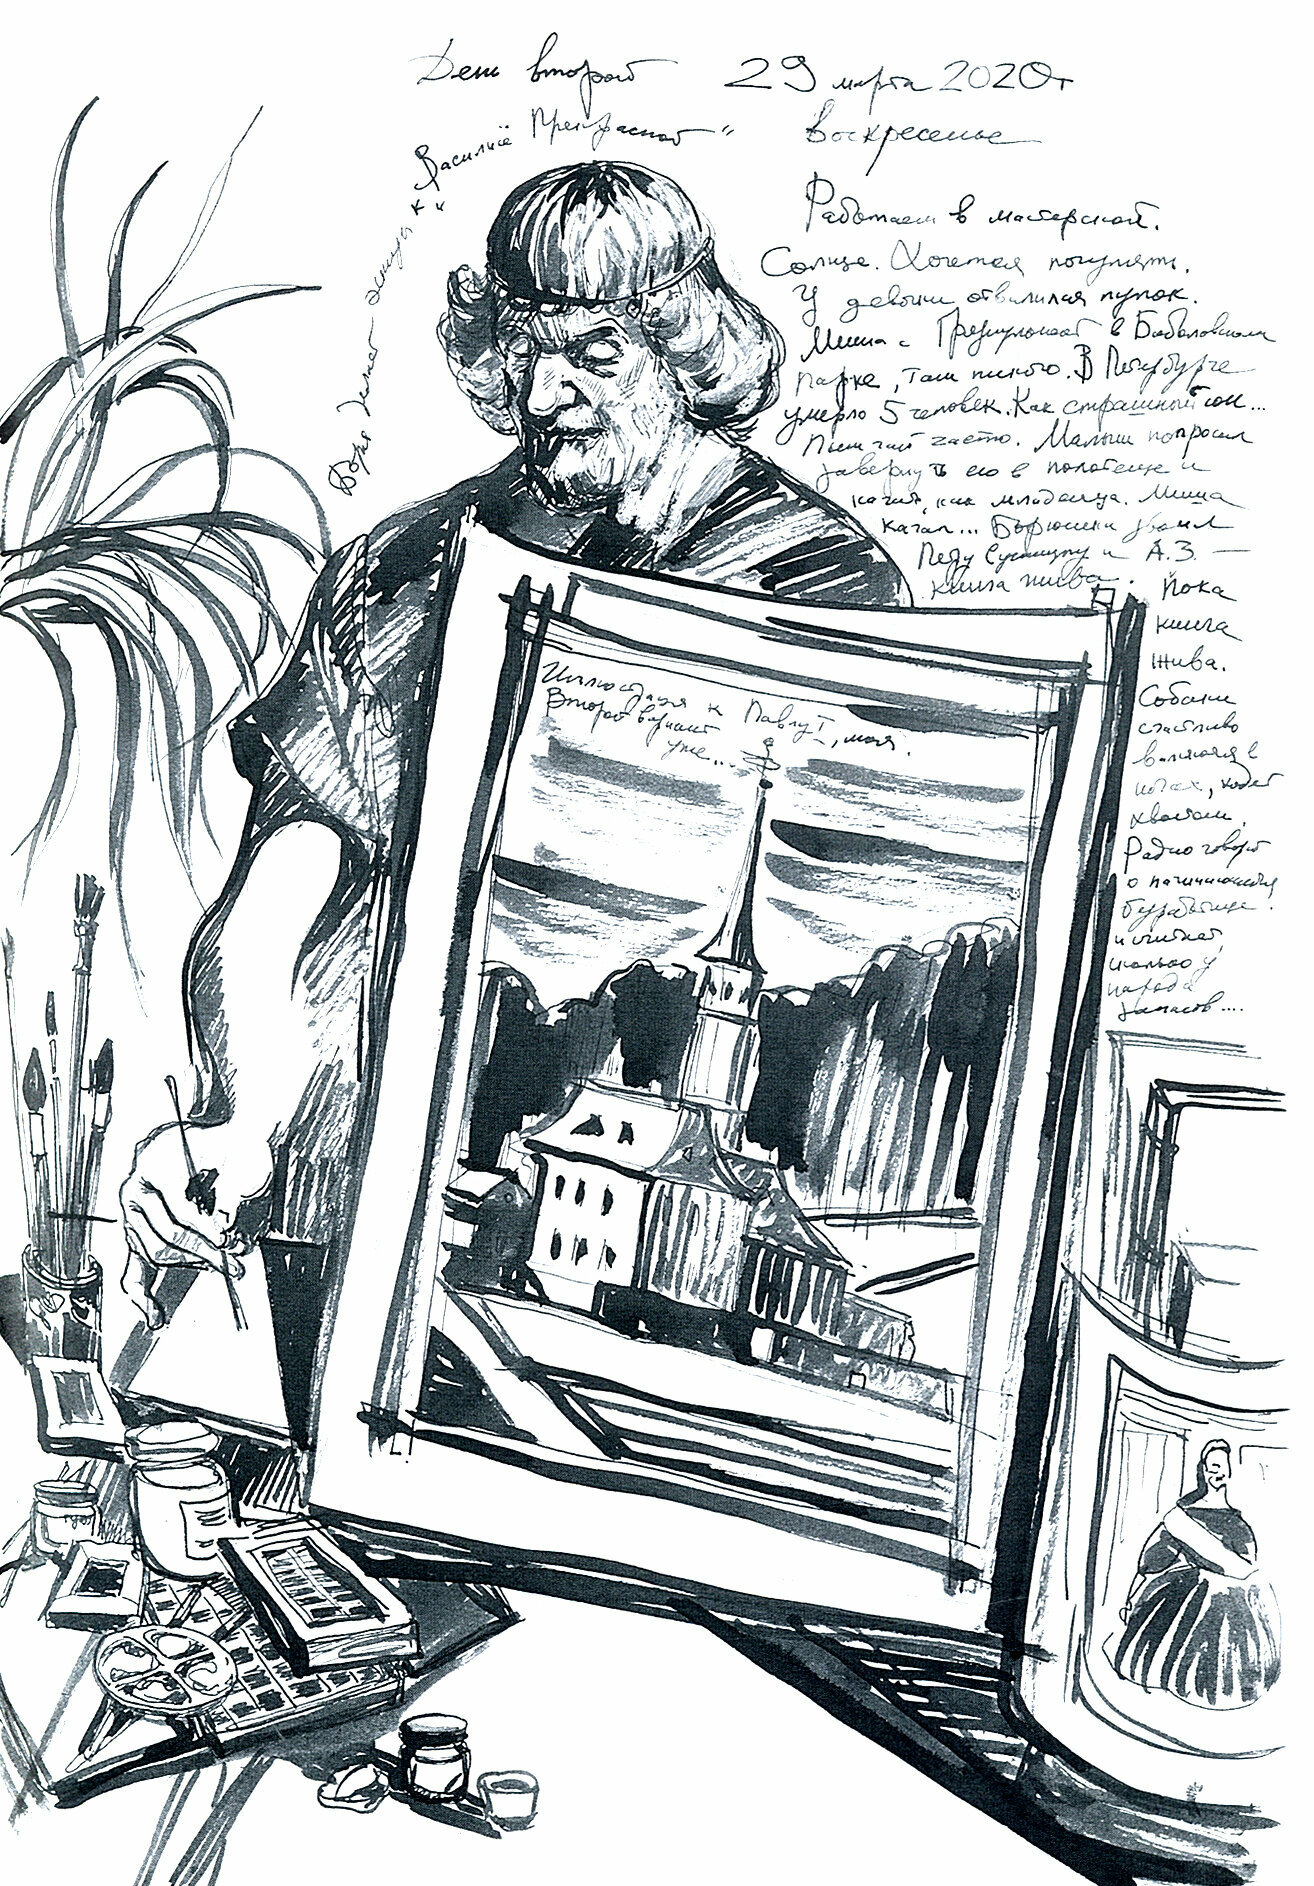 День второй 29 марта 2020г
Воскресенье
Боря делает эскиз к "Василисе Прекрасной"
Работаем в мастерской.
Солнце. Хочется погулять.
У девочки отвалился пупок.
Миша с в Баболовском
парке, там никого. В Петербурге
умерло 5 человек. Как страшный сон...
Пьём чай часто. Малыш попросил
завернуть его в полотенце и
качать, как младенца. Миша
качал... звонил
Пету и А.З. —
книга жива.
Пока
книга
жива.
Собаки
счастливо
валяются в
ногах,
хвостами.
Радио говорит
о начинающейся
безработице
и считает,
сколько у
народа
запасов....
Иллюстрация к , моя.
Второй вариант
уже...